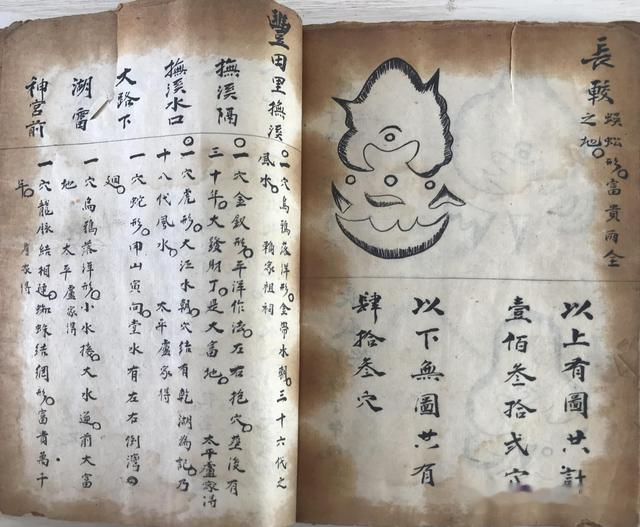 長較
蜈蚣形富貴両全
之地
以上有圖共計
壹佰叁拾弍穴
以下無圖共有
肆拾叁穴
豐田里撫溪
一穴烏鴉落洋形金帶水朝三十六代之
風水 賴家祖祠
撫溪隔
一穴金釵形平洋作法左右抱穴葬後有
三十年大發財丁是大富地 太平盧家得
撫溪水口
一穴虎形大江水朝穴結有乾湖為記乃
十八代風水 太平盧家得
大路下
一穴蛇形甲山寅向堂水有左右倒灣
廻
湖雷
一穴烏鴉落洋形小水後大水過前大富
地 太平盧家得
神宮前
一穴龍脈結相連蜘蛛結網形富貴萬千
年